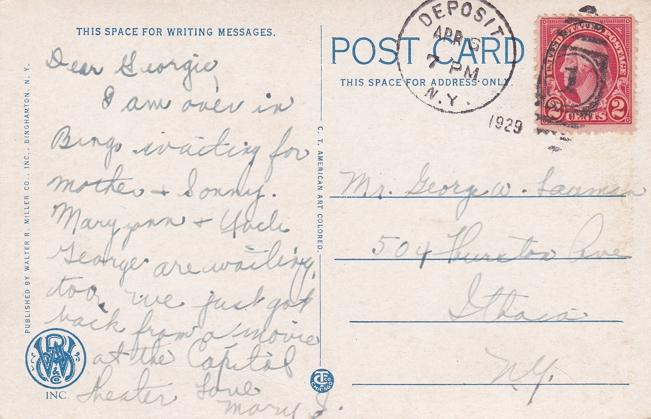 THIS SPACE FOR WRITING MESSAGES.
Dear Georgie,
I am over in
Bing. waiting for
mother + Sonny.
Maryann + Uncle
George are waiting,
too. We just got
back from a movie
at the Capitol
Theater Love
Mary J.
PUBLISHED BY WALTER R. MILLER CO., INC., BINGHAMTON, N. Y.
INC.
C. T. AMERICAN ART COLORED
POST CARD
THIS SPACE FOR ADDRESS ONLY.
DEPOSIT
APR
7 PM
N.Y.
1929
UNITED STATES POSTAGE
2 CENTS 2
Mr. George W.
504 Thurston Ave
Ithaca
N.Y.